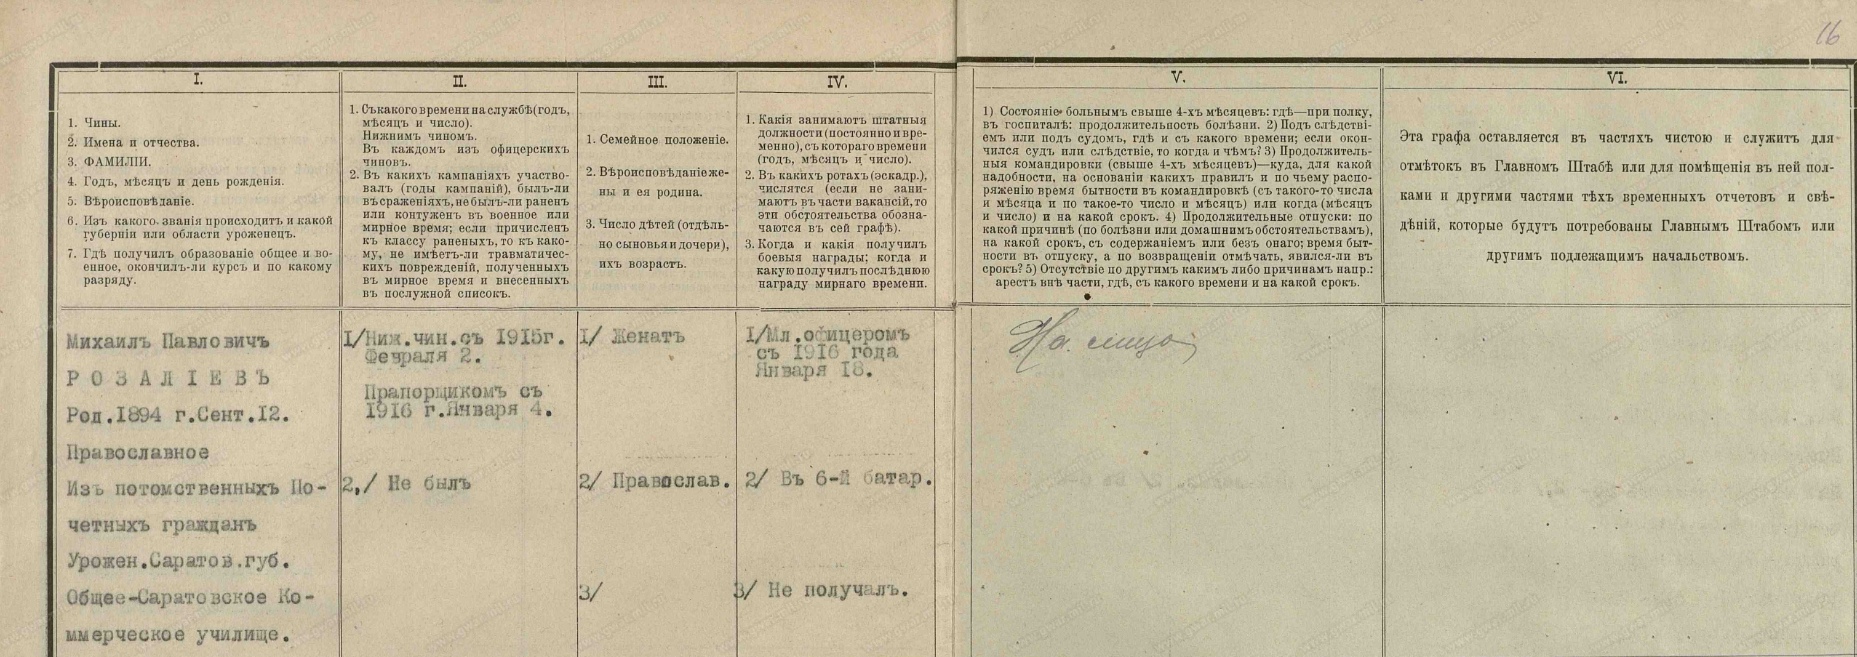 16
I.
1. Чины.
2. Имена и отчества.
3. ФАМИЛІИ.
4. Годъ, мѣсяцъ и день рожденія.
5. Вѣроисповѣданіе.
6. Изъ какого. званія происходитъ и какой
губерніи или области уроженецъ.
7. Гдѣ получилъ образованіе общее и во-
енное, окончилъ-ли курсъ и по какому
разряду.
II.
1. Съ какого времени на службѣ (годъ,
мѣсяцъ и число).
Нижнимъ чиномъ.
Въ каждомъ изъ офицерскихъ
чиновъ.
2. Въ какихъ кампаніяхъ участво-
валъ (годы кампаній), былъ-ли
въ сраженіяхъ, не былъ-ли раненъ
или контуженъ въ военное или
мирное время; если причисленъ
къ классу раненыхъ, то къ како-
му, не имѣетъ-ли травматичес-
кихъ поврежденій, полученныхъ
въ мирное время и внесенныхъ
въ послужной списокъ.
III.
1. Семейное положеніе.
2. Вѣроисповѣданіе же-
ны и ея родина.
3. Число дѣтей (отдѣль-
но сыновья и дочери),
ихъ возрастъ.
IV.
1. Какія занимаютъ штатныя
должности (постоянно и вре-
менно), съ котораго времени
(годъ, мѣсяцъ и число).
2. Въ какихъ ротахъ (эскадр.),
числятся (если не зани-
маютъ въ части вакансій, то
эти обстоятельства обозна-
чаются въ сей графѣ).
3. Когда и какія получилъ
боевыя награды; когда и
какую получилъ послѣднюю
награду мирнаго времени.
V.
1) Состояніе больнымъ свыше 4-хъ мѣсяцевъ: гдѣ—при полку,
въ госпиталѣ: продолжительность болѣзни. 2) Подъ слѣдстві-
емъ или подъ судомъ, гдѣ и съ какого времени; если окон-
чился судъ или слѣдствіе, то когда и чѣмъ? 3) Продолжитель-
ныя командировки (свыше 4-хъ мѣсяцевъ)—куда, для какой
надобности, на основаніи какихъ правилъ и по чьему распо-
ряженію время бытности въ командировкѣ (съ такого-то числа
и мѣсяца и по такое-то число и мѣсяцъ) или когда (мѣсяцъ
и число) и на какой срокъ. 4) Продолжительные отпуски: по
какой причинѣ (по болѣзни или домашнимъ обстоятельствамъ),
на какой срокъ, съ содержаніемъ или безъ онаго; время быт-
ности въ отпуску, а по возвращеніи отмѣчать, явился-ли въ
срокъ? 5) Отсутствіе по другимъ какимъ либо причинамъ напр.:
арестъ внѣ части, гдѣ, съ какого времени и на какой срокъ.
VI.
Эта графа оставляется въ частяхъ чистою и служитъ для
отмѣтокъ въ Главномъ Штабѣ или для помѣщенія въ ней пол-
ками и другими частями тѣхъ временныхъ отчетовъ и свѣ-
дѣній, которые будутъ потребованы Главнымъ Штабомъ или
другимъ подлежащимъ начальствомъ.
Михаилъ Павловичъ
Р О З А Л І Е В Ъ
Род.1894 г.Сент.12.
Православное
Изъ потомственныхъ По-
четныхъ гражданъ
Урожен.Саратов.губ.
Общее-Саратовское Ко-
ммерческое училище.
I/Ниж.чин.съ 1915г.
Февраля 2.
Прапорщикомъ съ
1916 г.Января 4.
2,/ Не былъ
I/ Женатъ
2/ Православ.
3/
I/Мл.офицеромъ
съ 1916 года
Января 18.
2/ Въ 6-й батар.
3/ Не получалъ.
На лицо